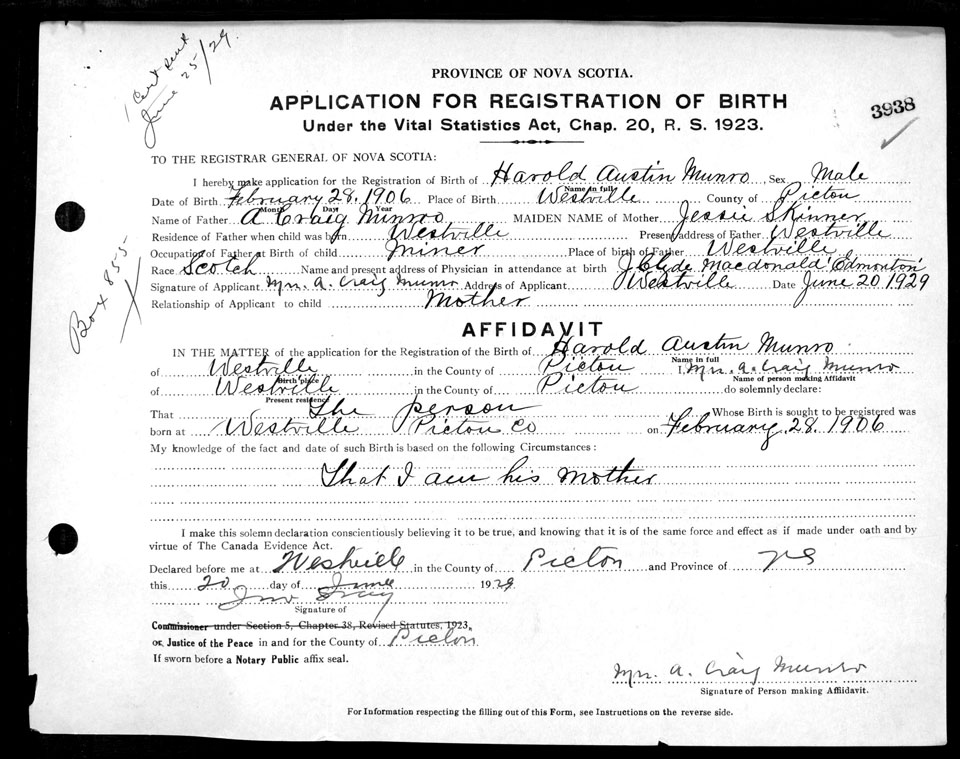 1 Cert sent
June 25/29
PROVINCE OF NOVA SCOTIA.
APPLICATION FOR REGISTRATION OF BIRTH
3938
Under the Vital Statistics Act, Chap. 20, R. S. 1923.
TO THE REGISTRAR GENERAL OF NOVA SCOTIA:
I hereby make application for the Registration of Birth of Harold Austin Munro Sex Male
Name in full
Date of Birth February 28. 1906 Place of Birth Westville County of Picton
Month Day Year
Name of Father A Craig Munro MAIDEN NAME of Mother Jessie Skinner
Residence of Father when child was born Westville Present address of Father Westville
Occupation of Father at Birth of child Miner Place of birth of Father Westville
Race Scotch Name and present address of Physician in attendance at birth J Clyde Macdonald Edmonton
Signature of Applicant Mrs. A. Craig Munro Address of Applicant Westville Date June 20 1929
Relationship of Applicant to child Mother
Box 855
AFFIDAVIT
IN THE MATTER of the application for the Registration of the Birth of Harold Austin Munro
Name in full
of Westville in the County of Picton I, Mrs. A. Craig Munro
Birth place Name of person making Affidavit
of Westville in the County of Picton do solemnly declare:
Present residence
That The person Whose Birth is sought to be registered was
born at Westville Picton Co on February 28. 1906
My knowledge of the fact and date of such Birth is based on the following Circumstances:
That I am his Mother
I make this solemn declaration conscientiously believing it to be true, and knowing that it is of the same force and effect as if made under oath and by
virtue of The Canada Evidence Act.
Declared before me at Westville in the County of Picton and Province of NS
this 20 day of June 1929
Gray
Signature of
Commissioner under Section 5, Chapter 38, Revised Statutes, 1923,
or, Justice of the Peace in and for the County of Picton
If sworn before a Notary Public affix seal.
Mrs. A. Craig Munro
Signature of Person making Affidavit.
For Information respecting the filling out of this Form, see Instructions on the reverse side.